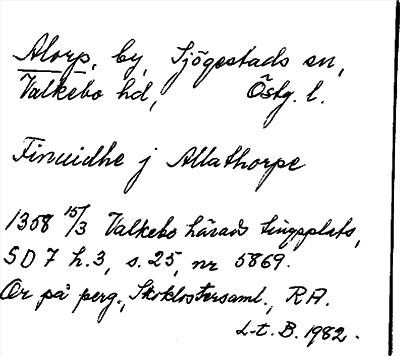 Alorp, by, Sjögestads sn,
Valkebo hd, Östg. l.
Finuidhe j Allathorpe
1358 15/3 Valkebo härads tingsplats,
SD 7 h.3, s. 25, nr 5869.
Or på perg., Skoklostersaml., RA.
L-t. B. 1982.